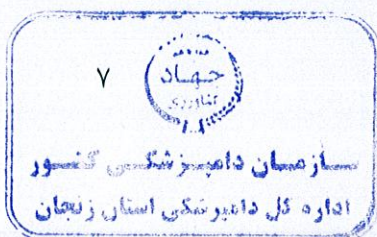 ۷
جهاد
کشاورزی
سازمان دامپزشکی کشور
اداره کل دامپزشکی استان زنجان